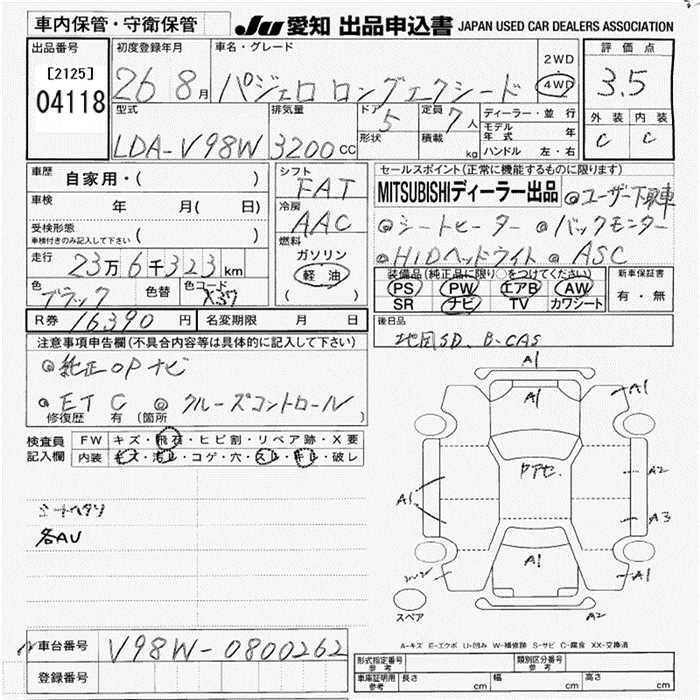 車内保管・守衛保管
JU 愛知 出品申込書 JAPAN USED CAR DEALERS ASSOCIATION
出品番号
[2125]
04118
初度登録年月
26 8月
車名・グレード
パジェロ ロングエクシード
2WD
4WD
評価点
3.5
外装 内装
C C
型式
LDA-V98W
排気量
3200 CC
ドア 5
形状
定員 7人
積載 kg
ディーラー・並行
モデル年式 年
ハンドル 左・右
車歴 自家用・( )
車検 年 月( 日)
受検形態
車検付きのみ記入して下さい ( )
走行 23万6千323km
色 ブラック 色替 色コード X37
R券 16390円 名変期限 月 日
シフト
FAT
冷房
AAC
燃料
ガソリン
軽油
( )
セールスポイント(正常に機能するものに限ります)
MITSUBISHIディーラー出品 ◎ユーザー下取車
◎シートヒーター ◎バックモニター
◎HIDヘッドライト ◎ASC
装備品(純正品に限り○をつけてください)
PS PW エアB AW
SR ナビ TV カワシート
新車保証書
有・無
後日品
地図SD. B-CAS
注意事項申告欄(不具合内容等は具体的に記入して下さい)
◎純正OPナビ
◎ETC ◎クルーズコントロール
修復歴 有 (箇所 )
検査員記入欄
FW キズ・飛石・ヒビ割・リペア跡・X要
内装 キズ・汚レ・コゲ・穴・スレ・キレ・破レ
シートヘタリ
各AU
A1
A1
A1
A1
A1
A2
A3
A1
A1
A2
スペア
A-キズ E-エクボ U-凹み W-補修跡 S-サビ C-腐食 XX-交換済
車台番号 V98W-0800262
登録番号
形式指定番号 参考
類別区分番号 参考
車庫証明用 参考 長さ cm 幅 cm 高さ cm